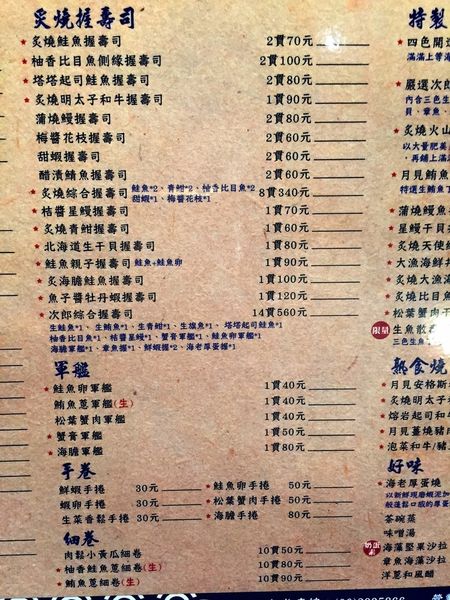 炙燒握壽司
★炙燒鮭魚握壽司 2貫70元
★柚香比目魚側緣握壽司 2貫100元
★塔塔起司鮭魚握壽司 2貫80元
★炙燒明太子和牛握壽司 1貫90元
蒲燒鰻握壽司 2貫80元
梅醬花枝握壽司 2貫60元
甜蝦握壽司 2貫60元
醋漬鯖魚握壽司 2貫60元
★炙燒綜合握壽司 鮭魚*2、青魽*2、柚香比目魚*2 8貫340元
甜蝦*1、梅醬花枝*1
★桔醬星鰻握壽司 1貫70元
★炙燒青魽握壽司 1貫60元
★北海道生干貝握壽司 1貫80元
★鮭魚親子握壽司 鮭魚+鮭魚卵 1貫90元
★炙海膽鮭魚握壽司 1貫100元
★魚子醬牡丹蝦握壽司 1貫120元
★次郎綜合握壽司 14貫560元
生鮭魚*1、生鮪魚*1、生青魽*1、生旗魚*1、塔塔起司鮭魚*1
柚香比目魚*1、桔醬星鰻*1、蟹膏軍艦*1、鮭魚卵軍艦*1
海膽軍艦*1、章魚握*1、鮮蝦握*2、海老厚蛋握*1
軍艦
★鮭魚卵軍艦 1貫40元
鮪魚蔥軍艦(生) 1貫40元
松葉蟹肉軍艦 1貫40元
★蟹膏軍艦 1貫50元
★海膽軍艦 1貫80元
手卷
鮮蝦手捲 30元
蝦卵手捲 30元
生菜香鬆手捲 30元
★鮭魚卵手捲 50元
★松葉蟹肉手捲 50元
★海膽手捲 80元
細卷
肉鬆小黃瓜細卷 10貫50元
★柚香鮭魚蔥細卷(生) 10貫80元
★鮪魚蔥細卷(生) 10貫90元
特製
★四色開
滿滿上等海
★嚴選次郎
內含三色生
貝、章魚、
★炙燒火山
以大量肥美
，再鋪上滿
★月見鮪魚
特選生鮪魚
★蒲燒鰻魚
★星鰻干貝
★炙燒天使
★大漁海鮮
★炙燒大漁
★炙燒比目
★松葉蟹肉
限量 生魚散
三色生魚
熟食燒
★月見安格斯
★炙燒明太子
★熔岩起司和牛
★月見薑燒豬
★泡菜和牛/豬
好味
★海老厚蛋燒
以新鮮現磨蝦泥加
般蓬鬆口感的厚蛋
茶碗蒸
味噌湯
奶蛋素 海藻堅果沙拉
章魚海藻沙拉
洋蔥和風醋